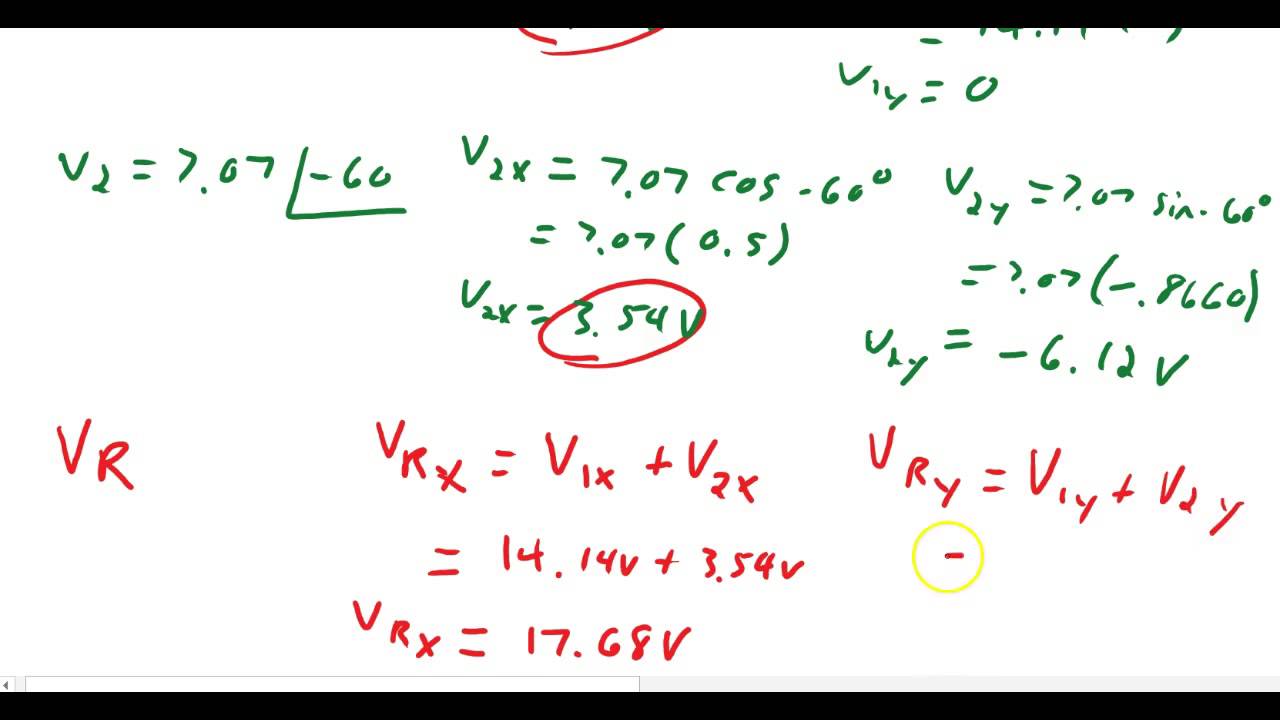 V1y = 0
V2 = 7.07 ∠-60
V2x = 7.07 cos -60°
= 7.07(0.5)
V2x = 3.54V
V2y = 7.07 sin -60°
= 7.07(-.8660)
V2y = -6.12V
VR
VRx = V1x + V2x
= 14.14v + 3.54v
VRx = 17.68V
VRy = V1y + V2y
-